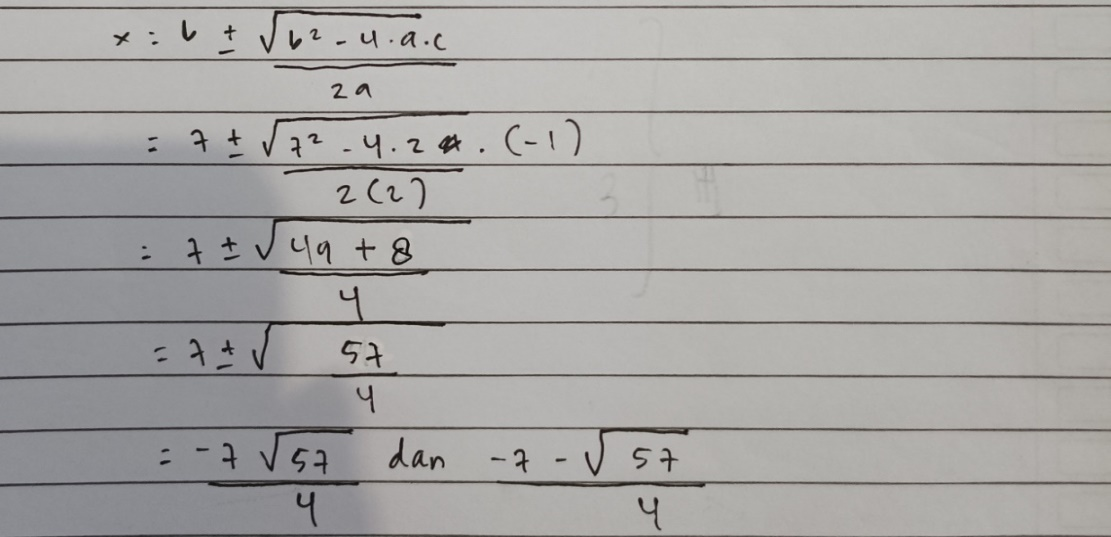 x = b ± √b² - 4.a.c
2a
= 7 ± √7² - 4.2 . (-1)
2(2)
= 7 ± √49 + 8
4
= 7 ± √57
4
= -7 √57 dan -7 - √57
4 4